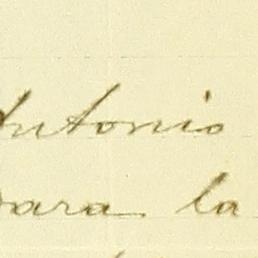 Antonio
para la